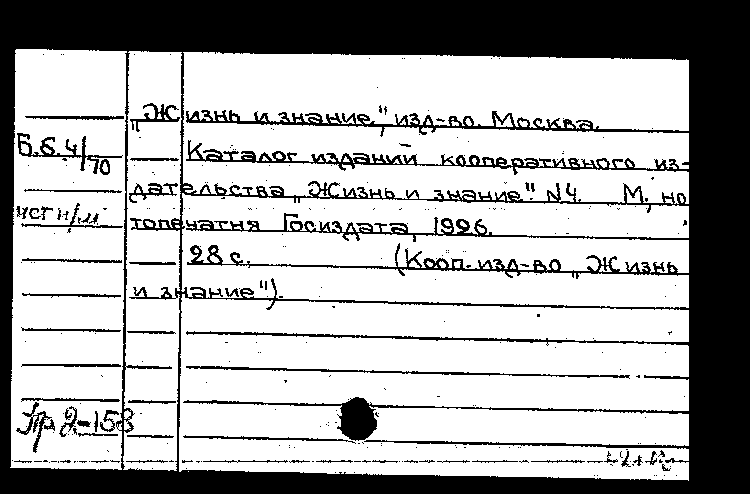 „Жизнь и знание“, изд-во. Москва.
Б.б.4/70
Каталог изданий кооперативного из-
дательства „Жизнь и знание“ N4. М, но
топечатня Госиздата, 1926.
28 с. (Кооп. изд-во „Жизнь
и знание“).
Пр 2-158